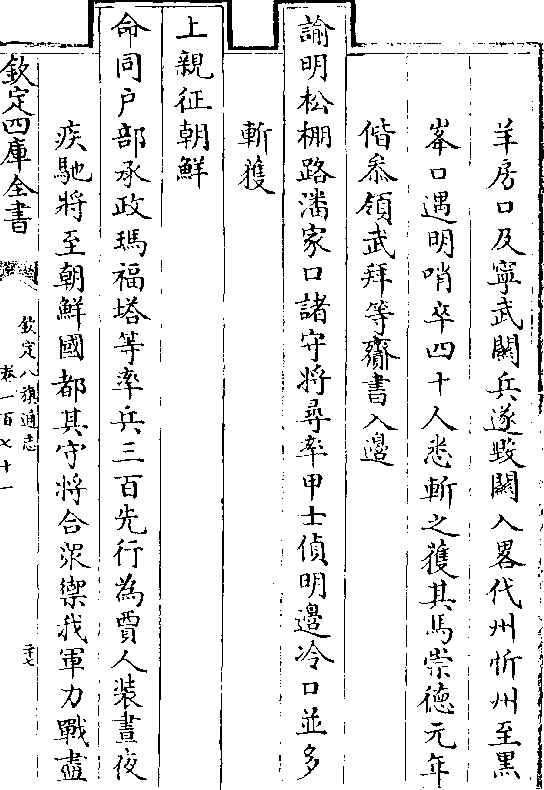 羊房口及寧武闗兵遂毁闗入畧代州忻州至黒
峯口遇明哨卒四十人悉斬之獲其馬崇德元年
偕叅領武拜等齎書入邊
諭明松棚路潘家口諸守將尋率甲士偵明邊冷口並多
斬獲
上親征朝鮮
命同户部承政瑪福塔等率兵三百先行為賈人装晝夜
疾馳將至朝鮮國都其守將合衆禦我軍力戰盡
欽定四庫全書
欽定八旗通志
卷一百七十一
二十七